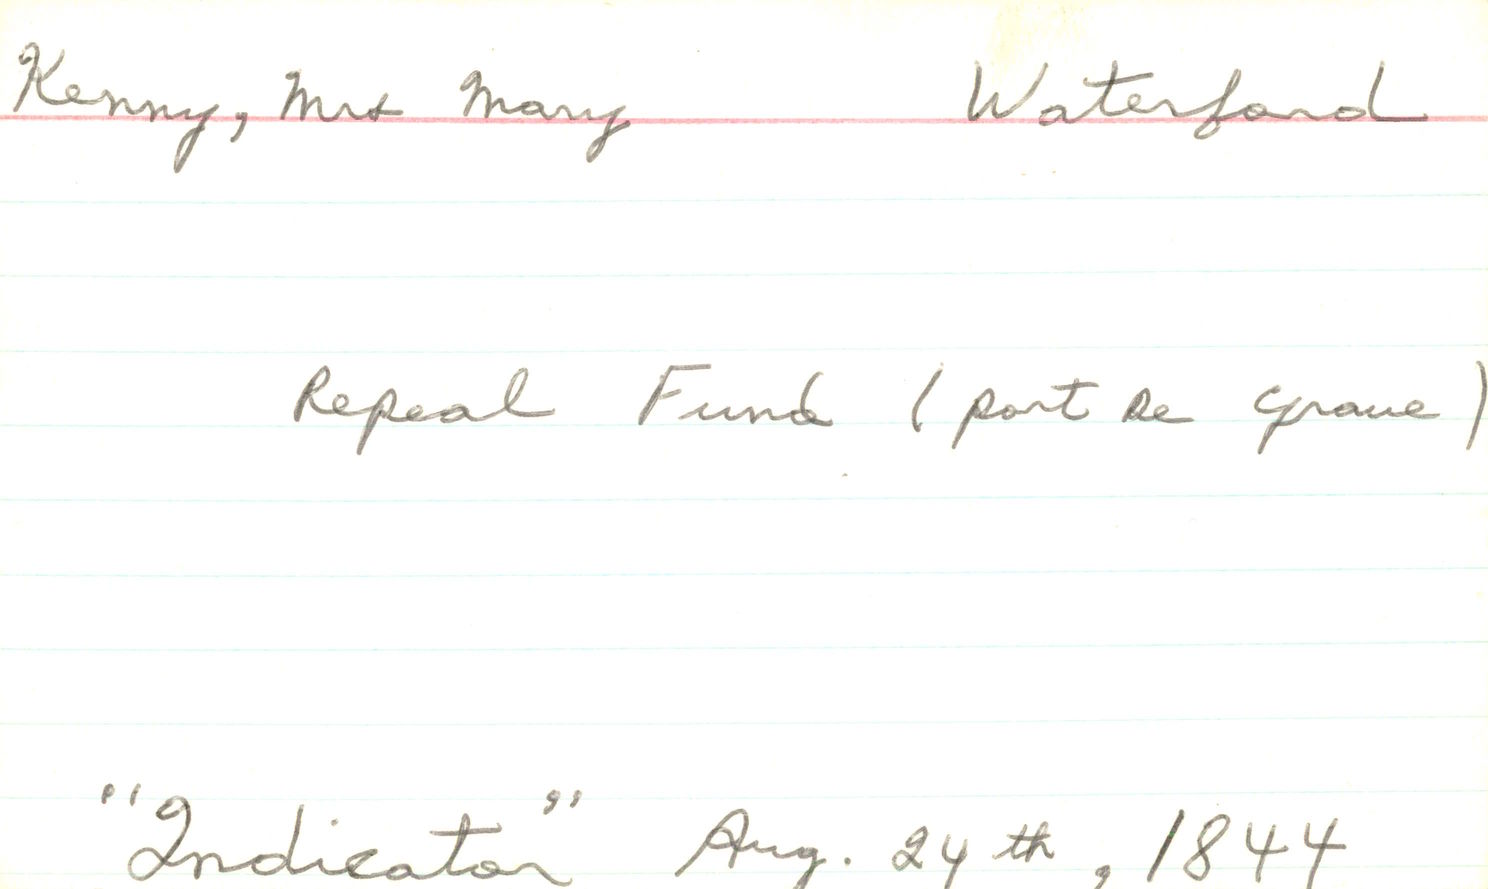 Kenny, Mrs Mary Waterford
Repeal Fund (port de grave)
"Indicator" Aug. 24th, 1844